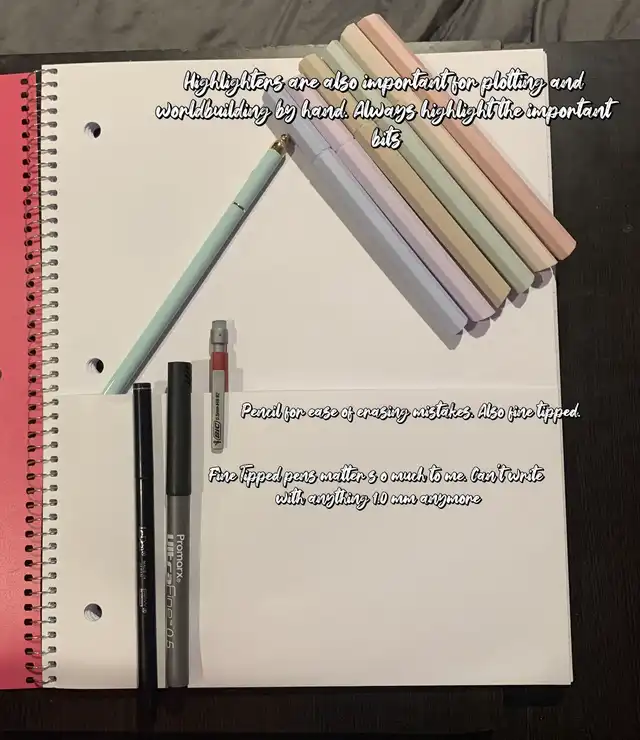 Highlighters are also important for plotting and
worldbuilding by hand. Always highlight the important
bits
Pencil for ease of erasing mistakes. Also fine tipped.
Fine Tipped pens matter s o much to me. Can't write
with anything 1.0 mm anymore
BIC
Promarx
UltraFine 0.5